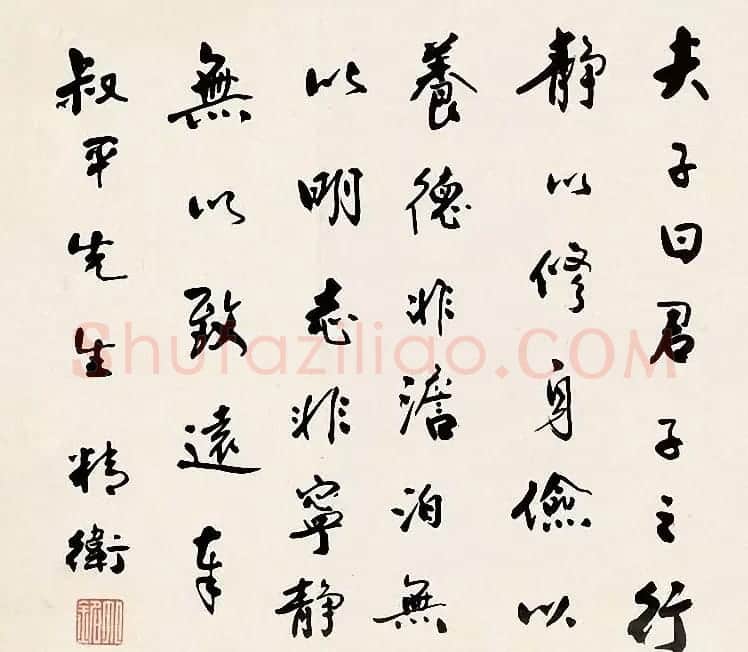 夫子曰君子之行
静以修身儉以
養德非澹泊無
以明志非寧静
無以致遠奉
叔平先生 精衛
Shufaziliao.COM